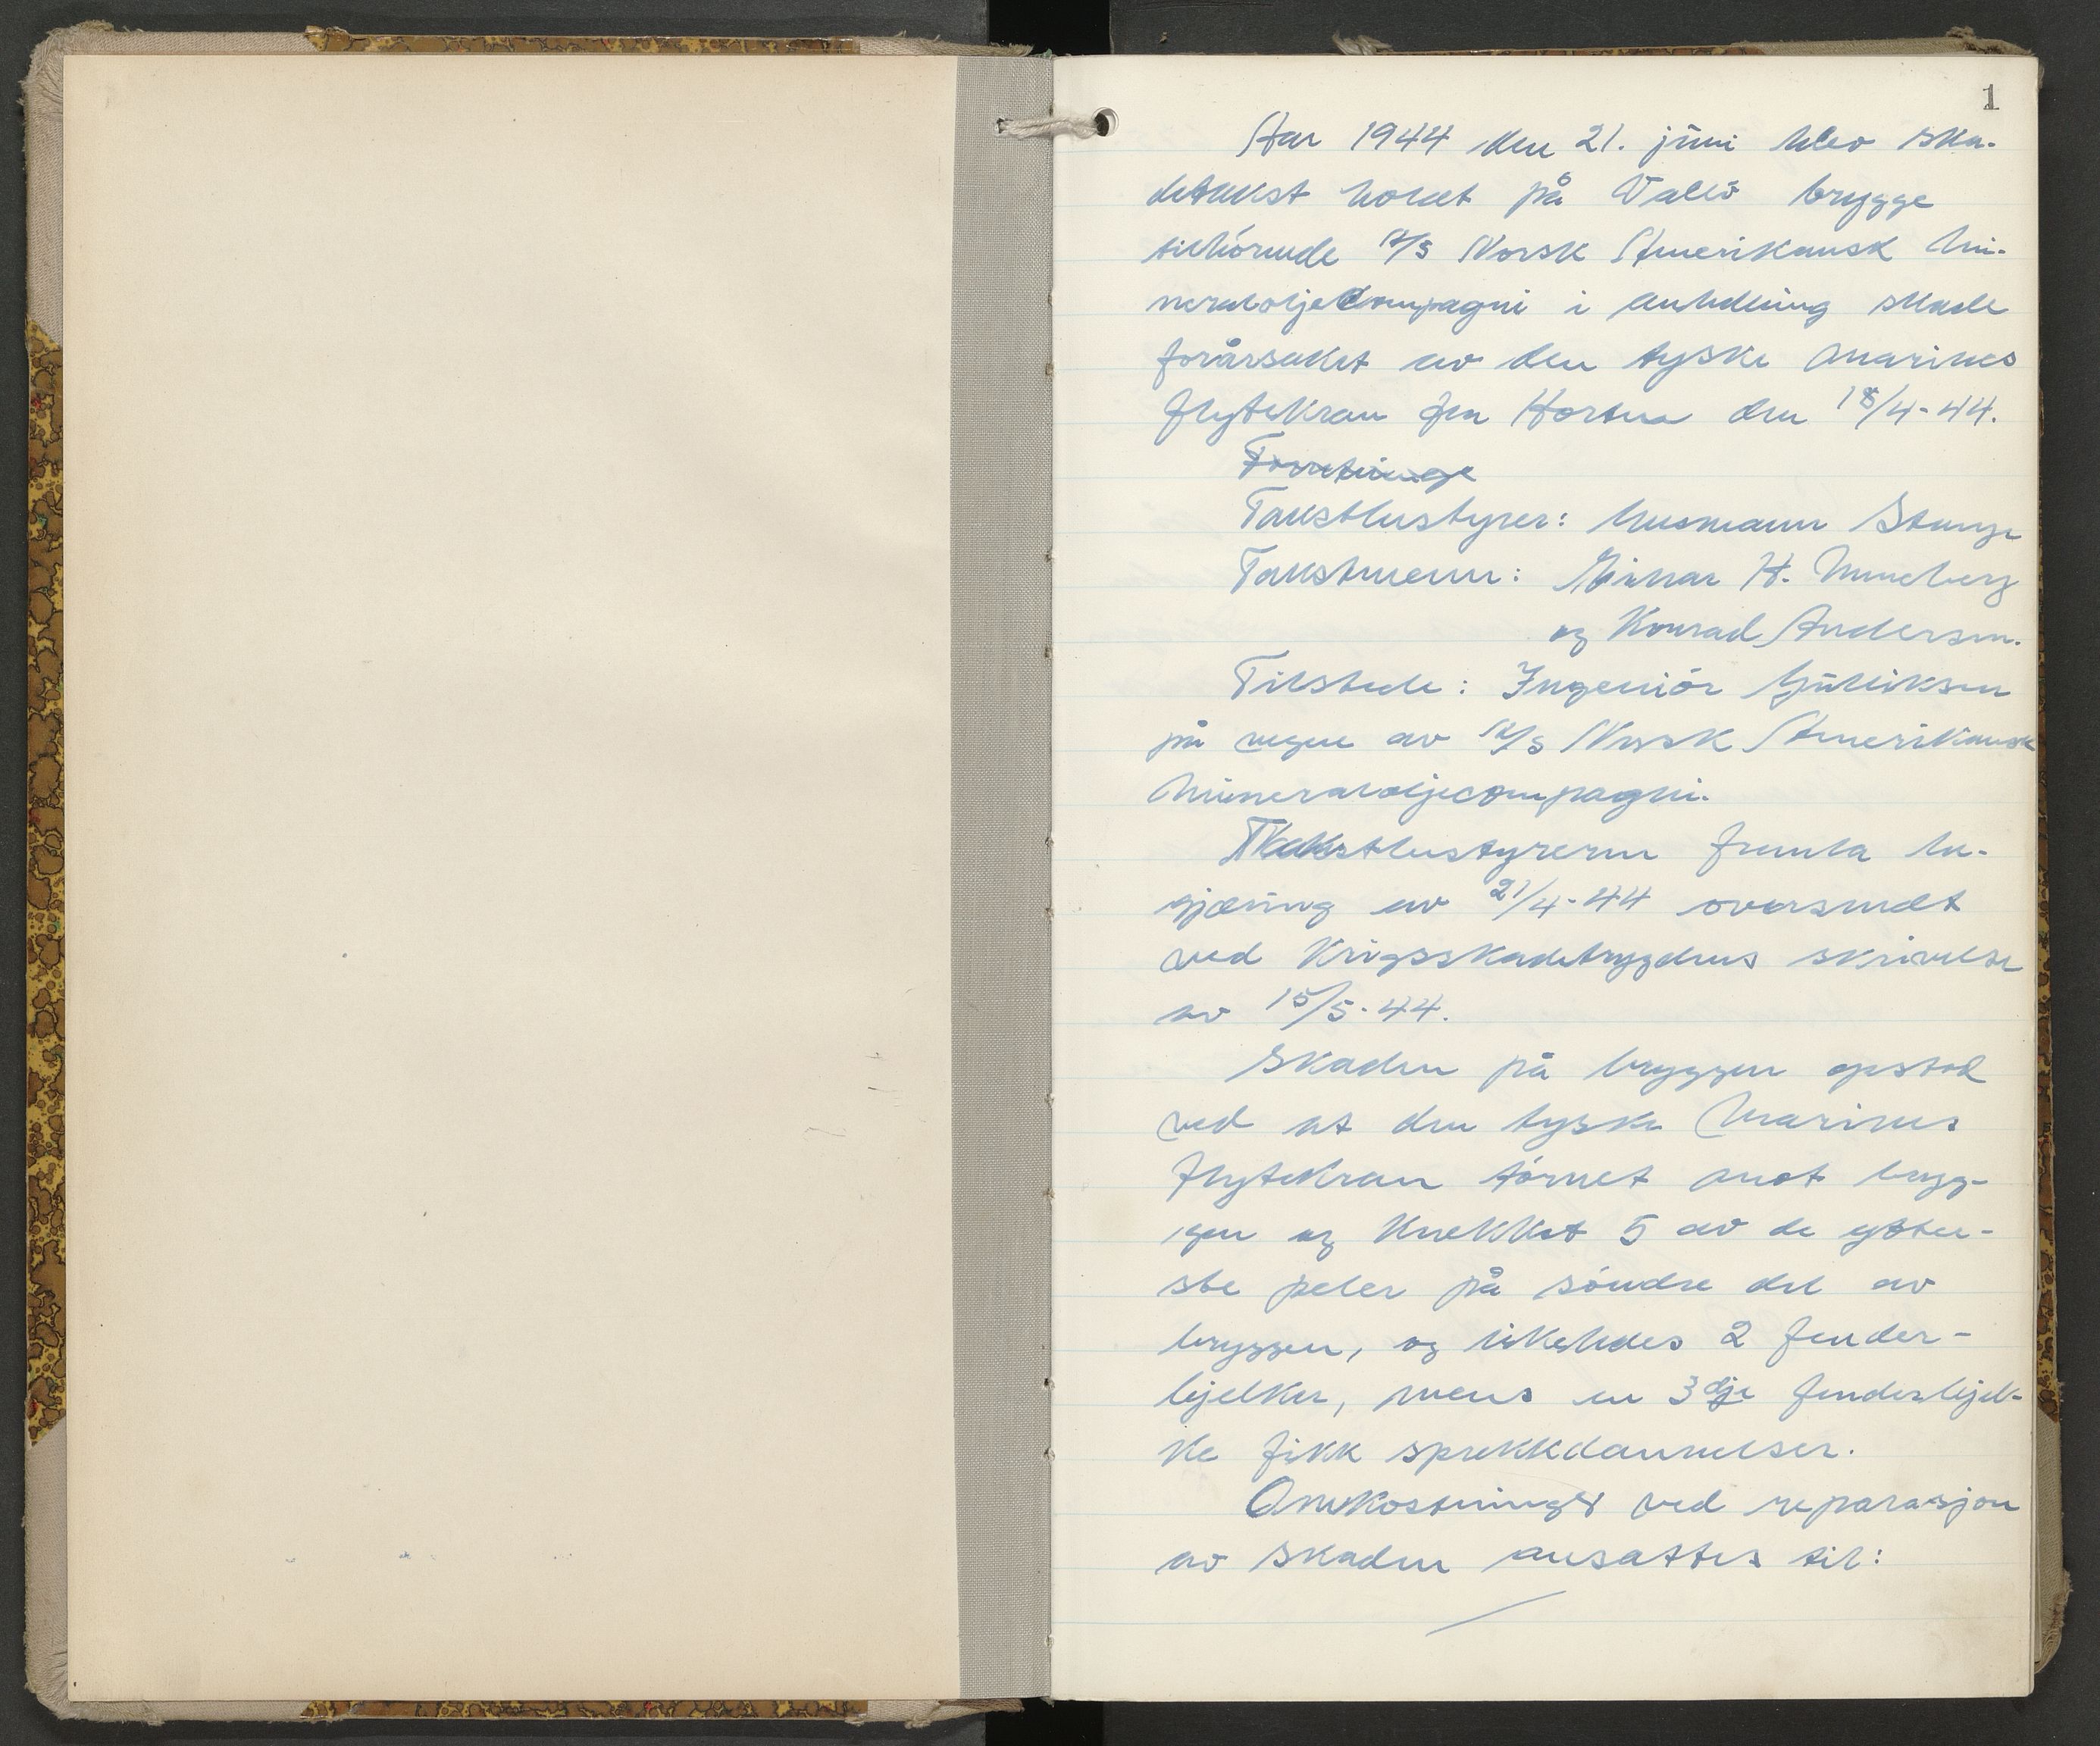 1
Aar 1944 den 21. juni blev ska-
detakst holdt på Vallö brygge
tilhörende A/S Norsk Amerikansk Mi-
neraloljecompagni i anledning skade
forårsaket av den tyske marines
flytekran fra Horten den 18/4-44.
Forretninge
Takstbestyrer: Lensmann Stange
Takstmenn: Einar H. Unneberg
og Konrad Andersen.
Tilstede: Ingeniör Gulliksen
på vegne av A/S Norsk Amerikansk
Mineraloljecompagni.
Takstbestyreren fremla be-
gjæring av 21/4-44 oversendt
ved Krigsskadetrygdens skrivelse
av 15/5-44.
Skaden på bryggen opstod
ved at den tyske Marines
flytekran törnet mot bryg-
gen og knekket 5 av de ytter-
ste peler på söndre del av
bryggen, og likeledes 2 fender-
bjelker, mens en 3dje fenderbjel-
ke fikk sprekkdannelser.
Omkostninger ved reparasjon
av skaden ansattes til: